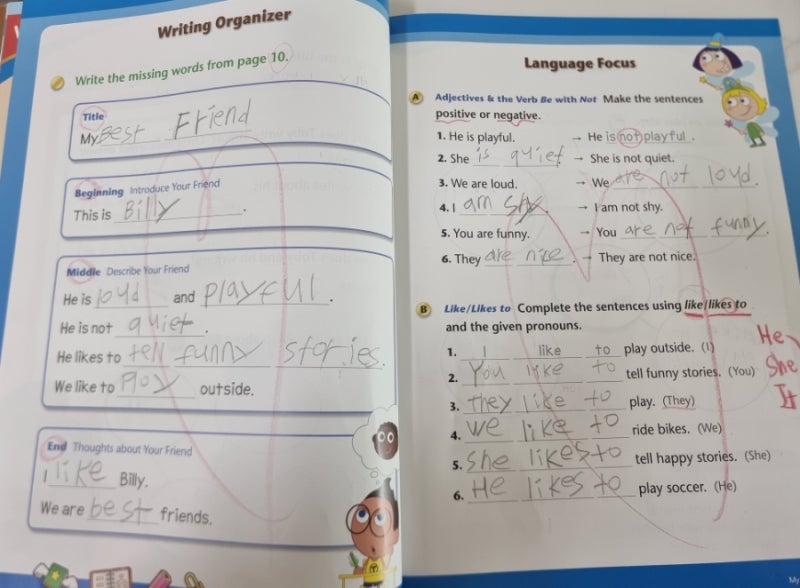 Writing Organizer
Write the missing words from page 10.
Title
My Best Friend
Beginning Introduce Your Friend
This is Billy.
Middle Describe Your Friend
He is loud and playful.
He is not quiet.
He likes to tell funny stories.
We like to Play outside.
End Thoughts about Your Friend
I like Billy.
We are best friends.
Language Focus
A Adjectives & the Verb Be with Not Make the sentences
positive or negative.
1. He is playful. → He is not playful.
2. She is quiet → She is not quiet.
3. We are loud. → We are not loud.
4. I am shy. → I am not shy.
5. You are funny. → You are not funny.
6. They are nice. → They are not nice.
B Like/Likes to Complete the sentences using like/likes to
and the given pronouns.
1. I like to play outside. (I)
2. You like to tell funny stories. (You)
3. they like to play. (They)
4. we like to ride bikes. (We)
5. She likes to tell happy stories. (She)
6. He likes to play soccer. (He)
He
She
It